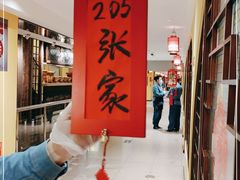 205
张
家